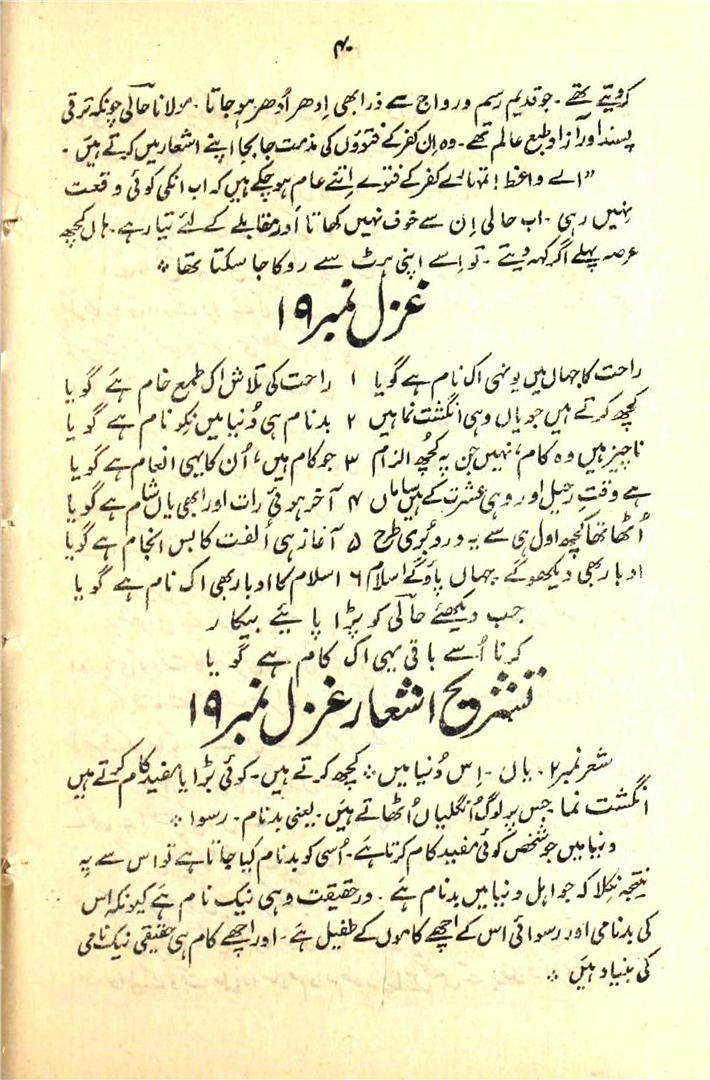 ۴۰
کر دیتے تھے۔ جو قدیم رسم و رواج سے ذرا بھی اِدھر اُدھر ہو جاتا۔ مولانا حالی چونکہ ترقی
پسند اور آزاد طبع عالم تھے۔ وہ اِن کفر کے فتووں کی مذمت جا بجا اپنے اشعار میں کرتے ہیں۔
"اے واعظ! تمہارے کفر کے فتوے اِتنے عام ہو چکے ہیں کہ اب انکی کوئی وقعت
نہیں رہی۔ اب حالی اِن سے خوف نہیں کھاتا اور مقابلے کے لئے تیار ہے۔ ہاں کچھ
عرصہ پہلے اگر کہہ دیتے۔ تو اِسے اپنی ہٹ سے روکا جا سکتا تھا ⁘
غزل نمبر ۱۹
راحت کا جہاں میں یونہی اک نام ہے گویا ۱ راحت کی تلاش اک طمع خام ہے گویا
کچھ کرتے ہیں جو یاں وہی انگشت نما ہیں ۲ بدنام ہی دُنیا میں نکو نام ہے گویا
ناچیز ہیں وہ کام، نہیں جن پہ کُچھ الزام ۳ جو کام ہیں، اُن کا یہی انعام ہے گویا
ہے وقتِ رحیل اور وہی عشرت کے ہیں ساماں ۴ آخر ہوئی رات اور ابھی یاں شام ہے گویا
اُٹھا تھا کچھ اول ہی سے یہ درد بُری طرح ۵ آغاز ہی اُلفت کا بس انجام ہے گویا
ادبار بھی دیکھو گے جہاں پاؤ گے اسلام ۶ اسلام کا ادبار بھی اک نام ہے گویا
جب دیکھئے حالی کو پڑا پائیے بیکار
کرنا اُسے باقی یہی اک کام ہے گویا
تشریح اشعار غزل نمبر ۱۹
شعر نمبر ۲۔ یاں۔ اِس دُنیا میں ⁘ کچھ کرتے ہیں۔ کوئی بڑا یا مفید کام کرتے ہیں
انگشت نما۔ جس پر لوگ اُنگلیاں اُٹھاتے ہیں۔ یعنی بدنام۔ رسوا ⁘
دنیا میں جو شخص کوئی مفید کام کرتا ہے۔ اُسی کو بدنام کیا جاتا ہے تو اس سے یہ
نتیجہ نکلا کہ جو اہل دنیا میں بدنام ہے۔ درحقیقت وہی نیک نام ہے کیونکہ اس
کی بدنامی اور رسوائی اس کے اچھے کاموں کے طفیل ہے۔ اور اچھے کام ہی حقیقی نیک نامی
کی بنیاد ہیں ⁘